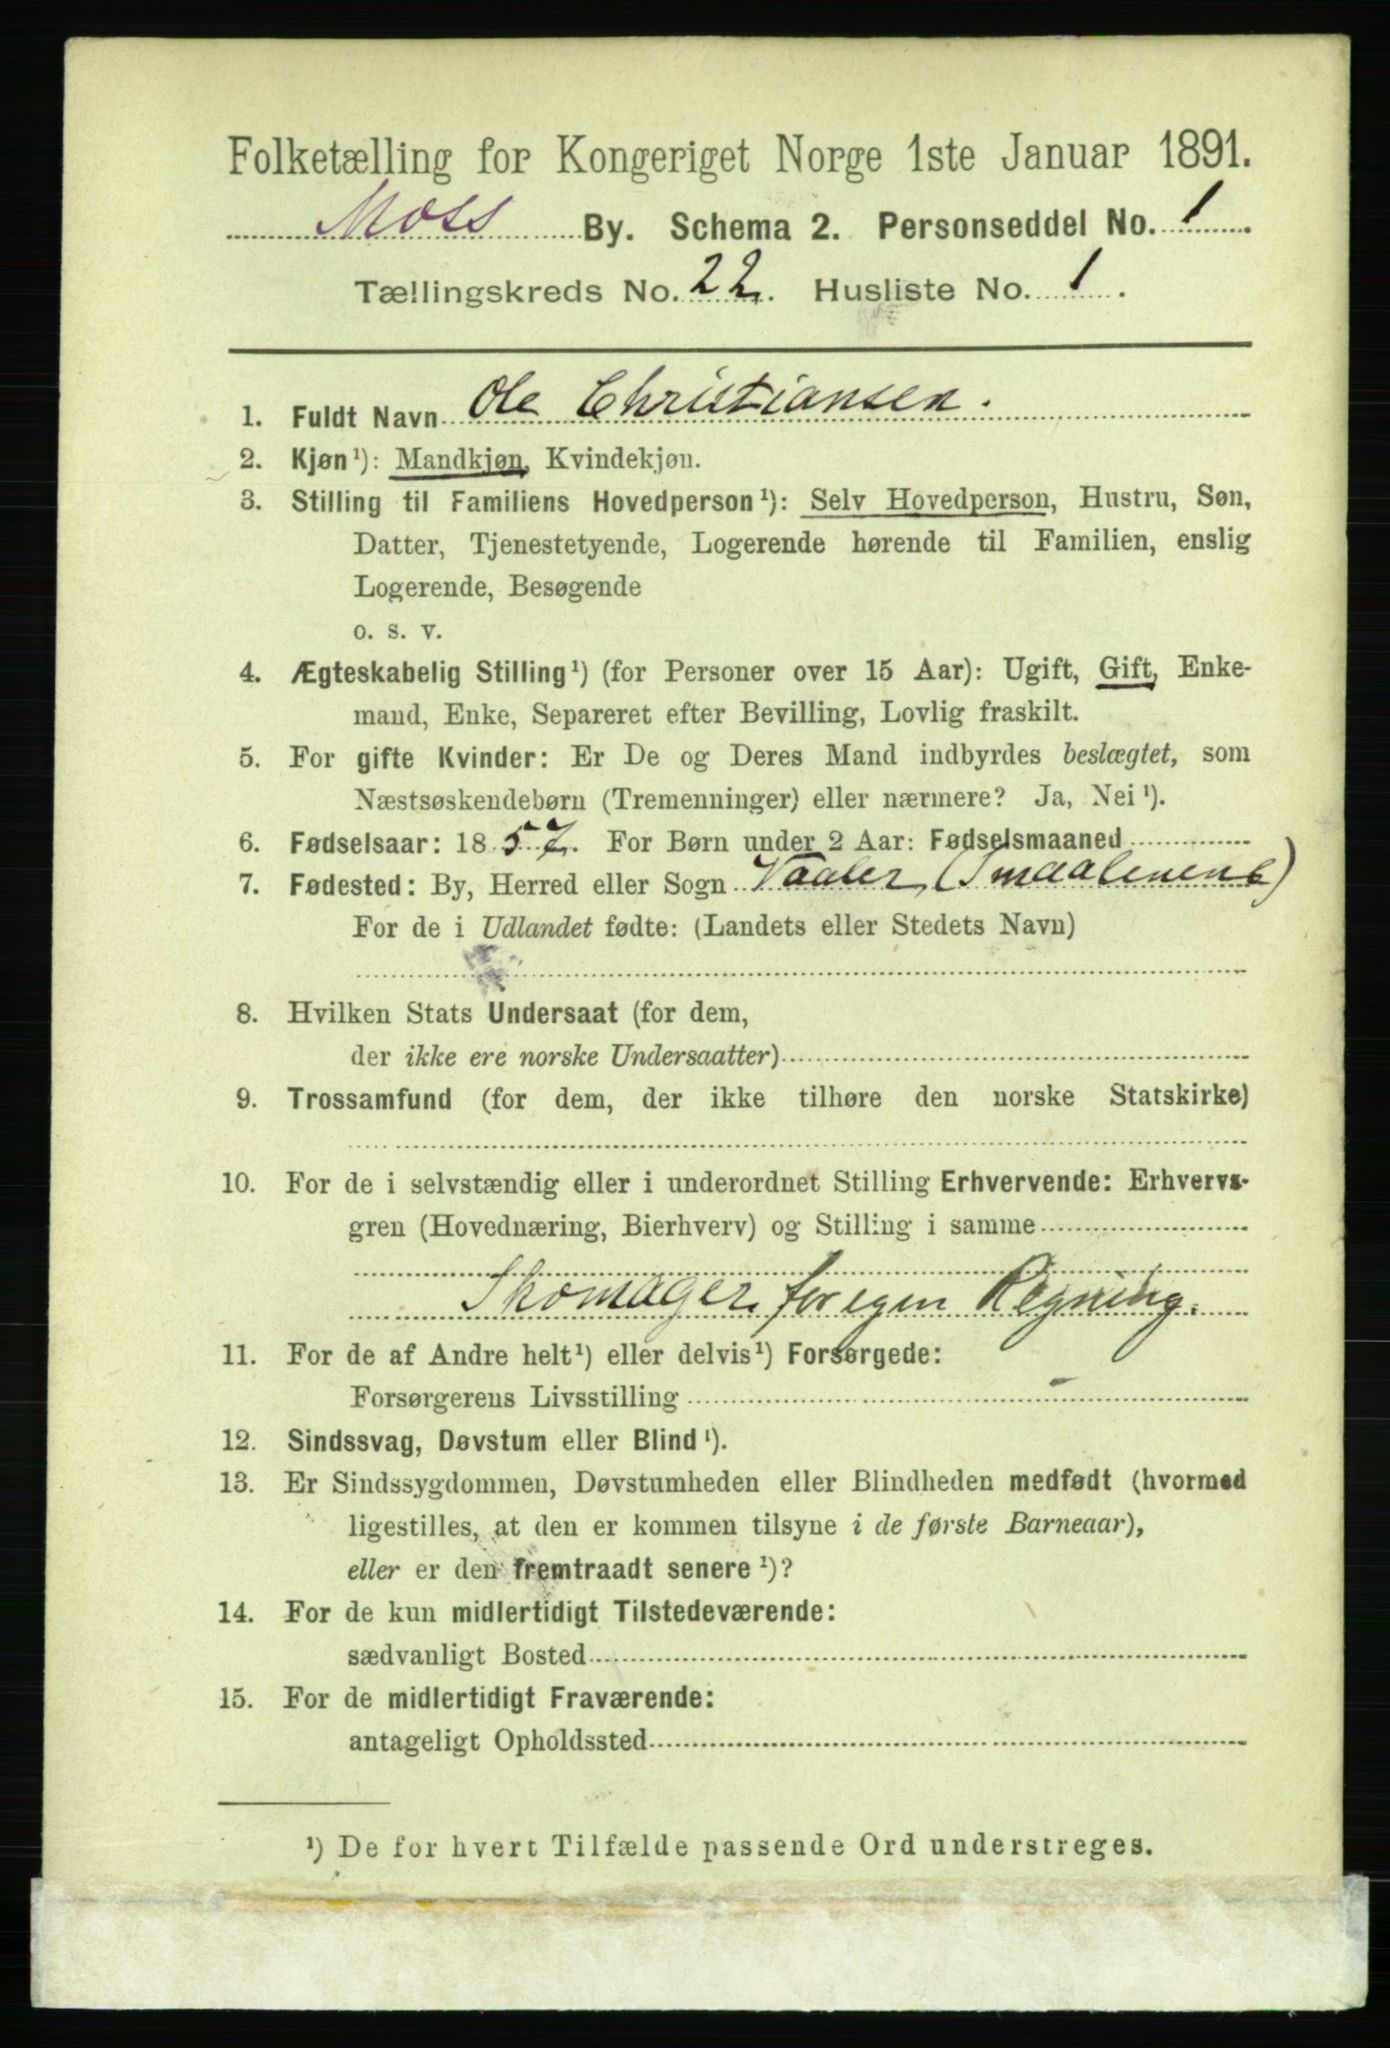 Folketælling for Kongeriget Norge 1ste Januar 1891.
Moss By. Schema 2. Personseddel No. 1
Tællingskreds No. 22. Husliste No. 1.
1. Fuldt Navn Ole Christiansen.
2. Kjøn¹): Mandkjøn, Kvindekjøn.
3. Stilling til Familiens Hovedperson¹): Selv Hovedperson, Hustru, Søn,
Datter, Tjenestetyende, Logerende hørende til Familien, enslig
Logerende, Besøgende
o. s. v.
4. Ægteskabelig Stilling¹) (for Personer over 15 Aar): Ugift, Gift, Enke-
mand, Enke, Separeret efter Bevilling, Lovlig fraskilt.
5. For gifte Kvinder: Er De og Deres Mand indbyrdes beslægtet, som
Næstsøskendebørn (Tremenninger) eller nærmere? Ja, Nei¹).
6. Fødselsaar: 1857. For Børn under 2 Aar: Fødselsmaaned
7. Fødested: By, Herred eller Sogn Vaaler (Smaalenene)
For de i Udlandet fødte: (Landets eller Stedets Navn)
8. Hvilken Stats Undersaat (for dem,
der ikke ere norske Undersaatter)
9. Trossamfund (for dem, der ikke tilhøre den norske Statskirke)
10. For de i selvstændig eller i underordnet Stilling Erhvervende: Erhvervs-
gren (Hovednæring, Bierhverv) og Stilling i samme
Skomager for egen Regning.
11. For de af Andre helt¹) eller delvis¹) Forsørgede:
Forsørgerens Livsstilling -
12. Sindssvag, Døvstum eller Blind¹).
13. Er Sindssygdommen, Døvstumheden eller Blindheden medfødt (hvormed
ligestilles, at den er kommen tilsyne i de første Barneaar),
eller er den fremtraadt senere¹)?
14. For de kun midlertidigt Tilstedeværende:
sædvanligt Bosted
15. For de midlertidigt Fraværende:
antageligt Opholdssted
¹) De for hvert Tilfælde passende Ord understreges.